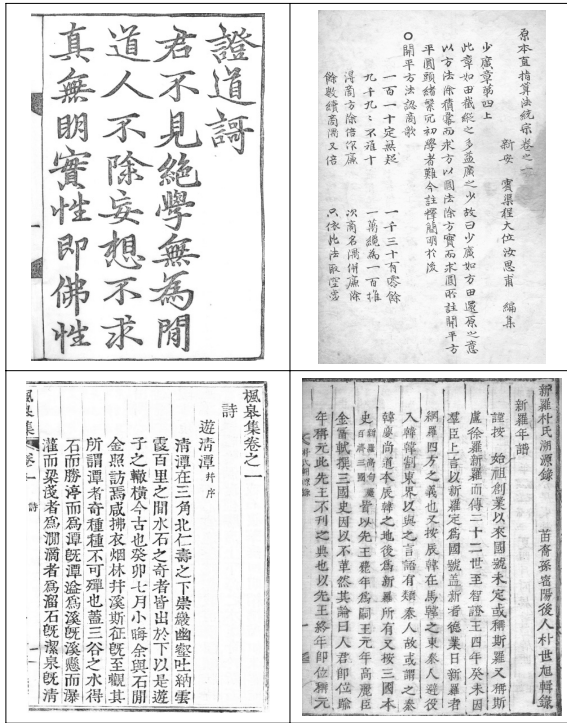 證道謌
君不見絕學無為閒
道人不除妄想不求
真無明實性即佛性
原本直指算法統宗卷之一
新安 賓渠程大位汝思甫 編集
少廣章第四上
此章如田截縱之多益廣之少故曰少廣如方田還原之意
以方法除積冪而求方以圓法除方實而求圓所註開平方
平圓頭緒繁冗初學者難今註釋簡明於後
○開平方法認商歌
一百一十定無疑 一千三十有零餘
九千九〻不離十 一萬纔為一百推
得商方除倍作廉 次商名隅併廉除
餘數續商隅又倍 只依此法取空當
楓皋集卷之一
詩
遊淸潭 幷序
淸潭在三角北仁壽之下崇巖幽壑吐納雲
霞百里之間水石之奇者皆出於下以是遊
子之轍橫今古也癸卯七月小晦余與石閒
金照訪焉咸拂衣烟林幷溪斯征旣至觀其
所謂潭者奇種種不可殫也蓋三谷之水得
石而勝渟而爲潭旣潭溢爲溪旣溪懸而瀑
灌而梁淺者爲澗滴者爲溜石旣潔泉旣淸
楓皋集 卷一 詩 一
新羅朴氏溯源錄 苗裔孫密陽後人朴世旭輯錄
新羅年譜
謹按 始祖創業以來國號未定或稱斯羅又稱斯
盧徐羅新羅而傳二十二世至智證王四年癸未因
羣臣上言以新羅定爲國號盖新者德業日新羅者
網羅四方之義也又按辰韓在馬韓之東秦人避役
入韓韓割東界以與之言語有類秦人故或謂之秦
韓崔尙道本辰韓之地後爲新羅所有又按三國本
史 新羅高句麗百濟三國 皆以先王薨年爲嗣王元年高麗臣
金富軾撰三國史因以不革然其論曰人君卽位踰
年稱元此先王不刊之典也以先王終年卽位稱元